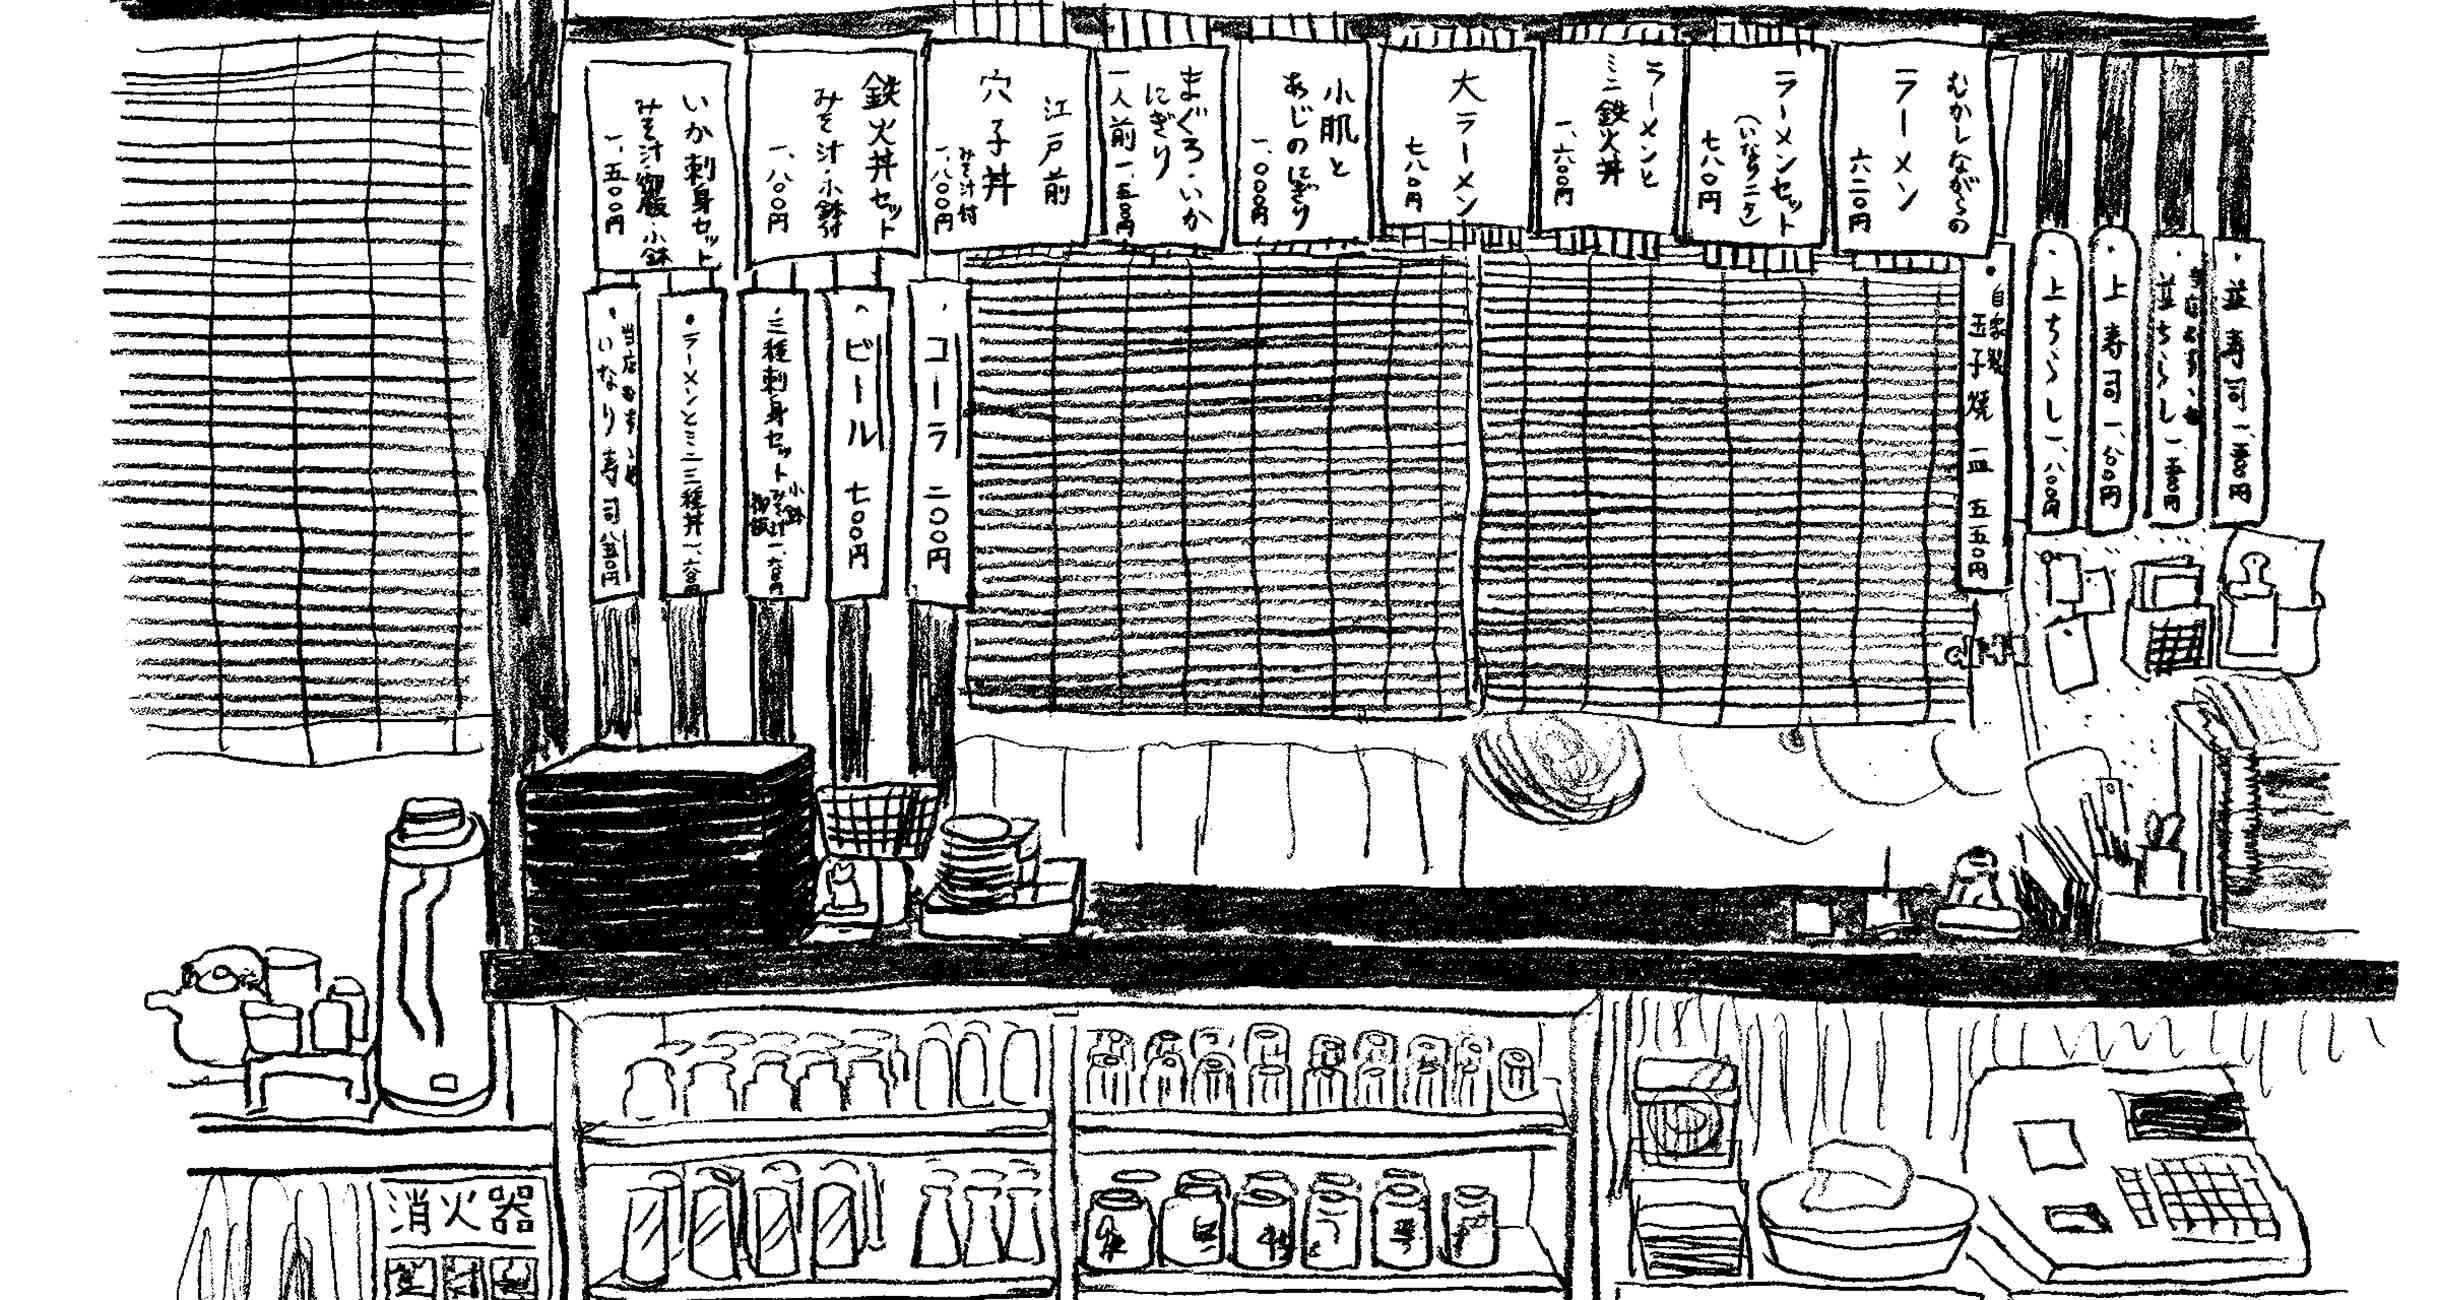 むかしながらの
ラーメン
六二〇円
ラーメンセット
(いなり二ケ)
七八〇円
ラーメンと
ミニ鉄火丼
一、六〇〇円
大ラーメン
七八〇円
小肌と
あじのにぎり
一、〇〇〇円
まぐろ・いか
にぎり
一人前一、五〇〇円
江戸前
穴子丼
みそ汁付
一、八〇〇円
鉄火丼セット
みそ汁・小鉢付
一、八〇〇円
いか刺身セット
みそ汁・御飯・小鉢
一、五〇〇円
・並寿司
・並ちらし
・上寿司
・上ちらし 一、八〇〇円
・自家製
玉子焼 一皿 五五〇円
・コーラ 二〇〇円
・ビール 七〇〇円
・三種刺身セット
小鉢
みそ汁
御飯
・ラーメンとミニ三種丼
・いなり寿司
消火器